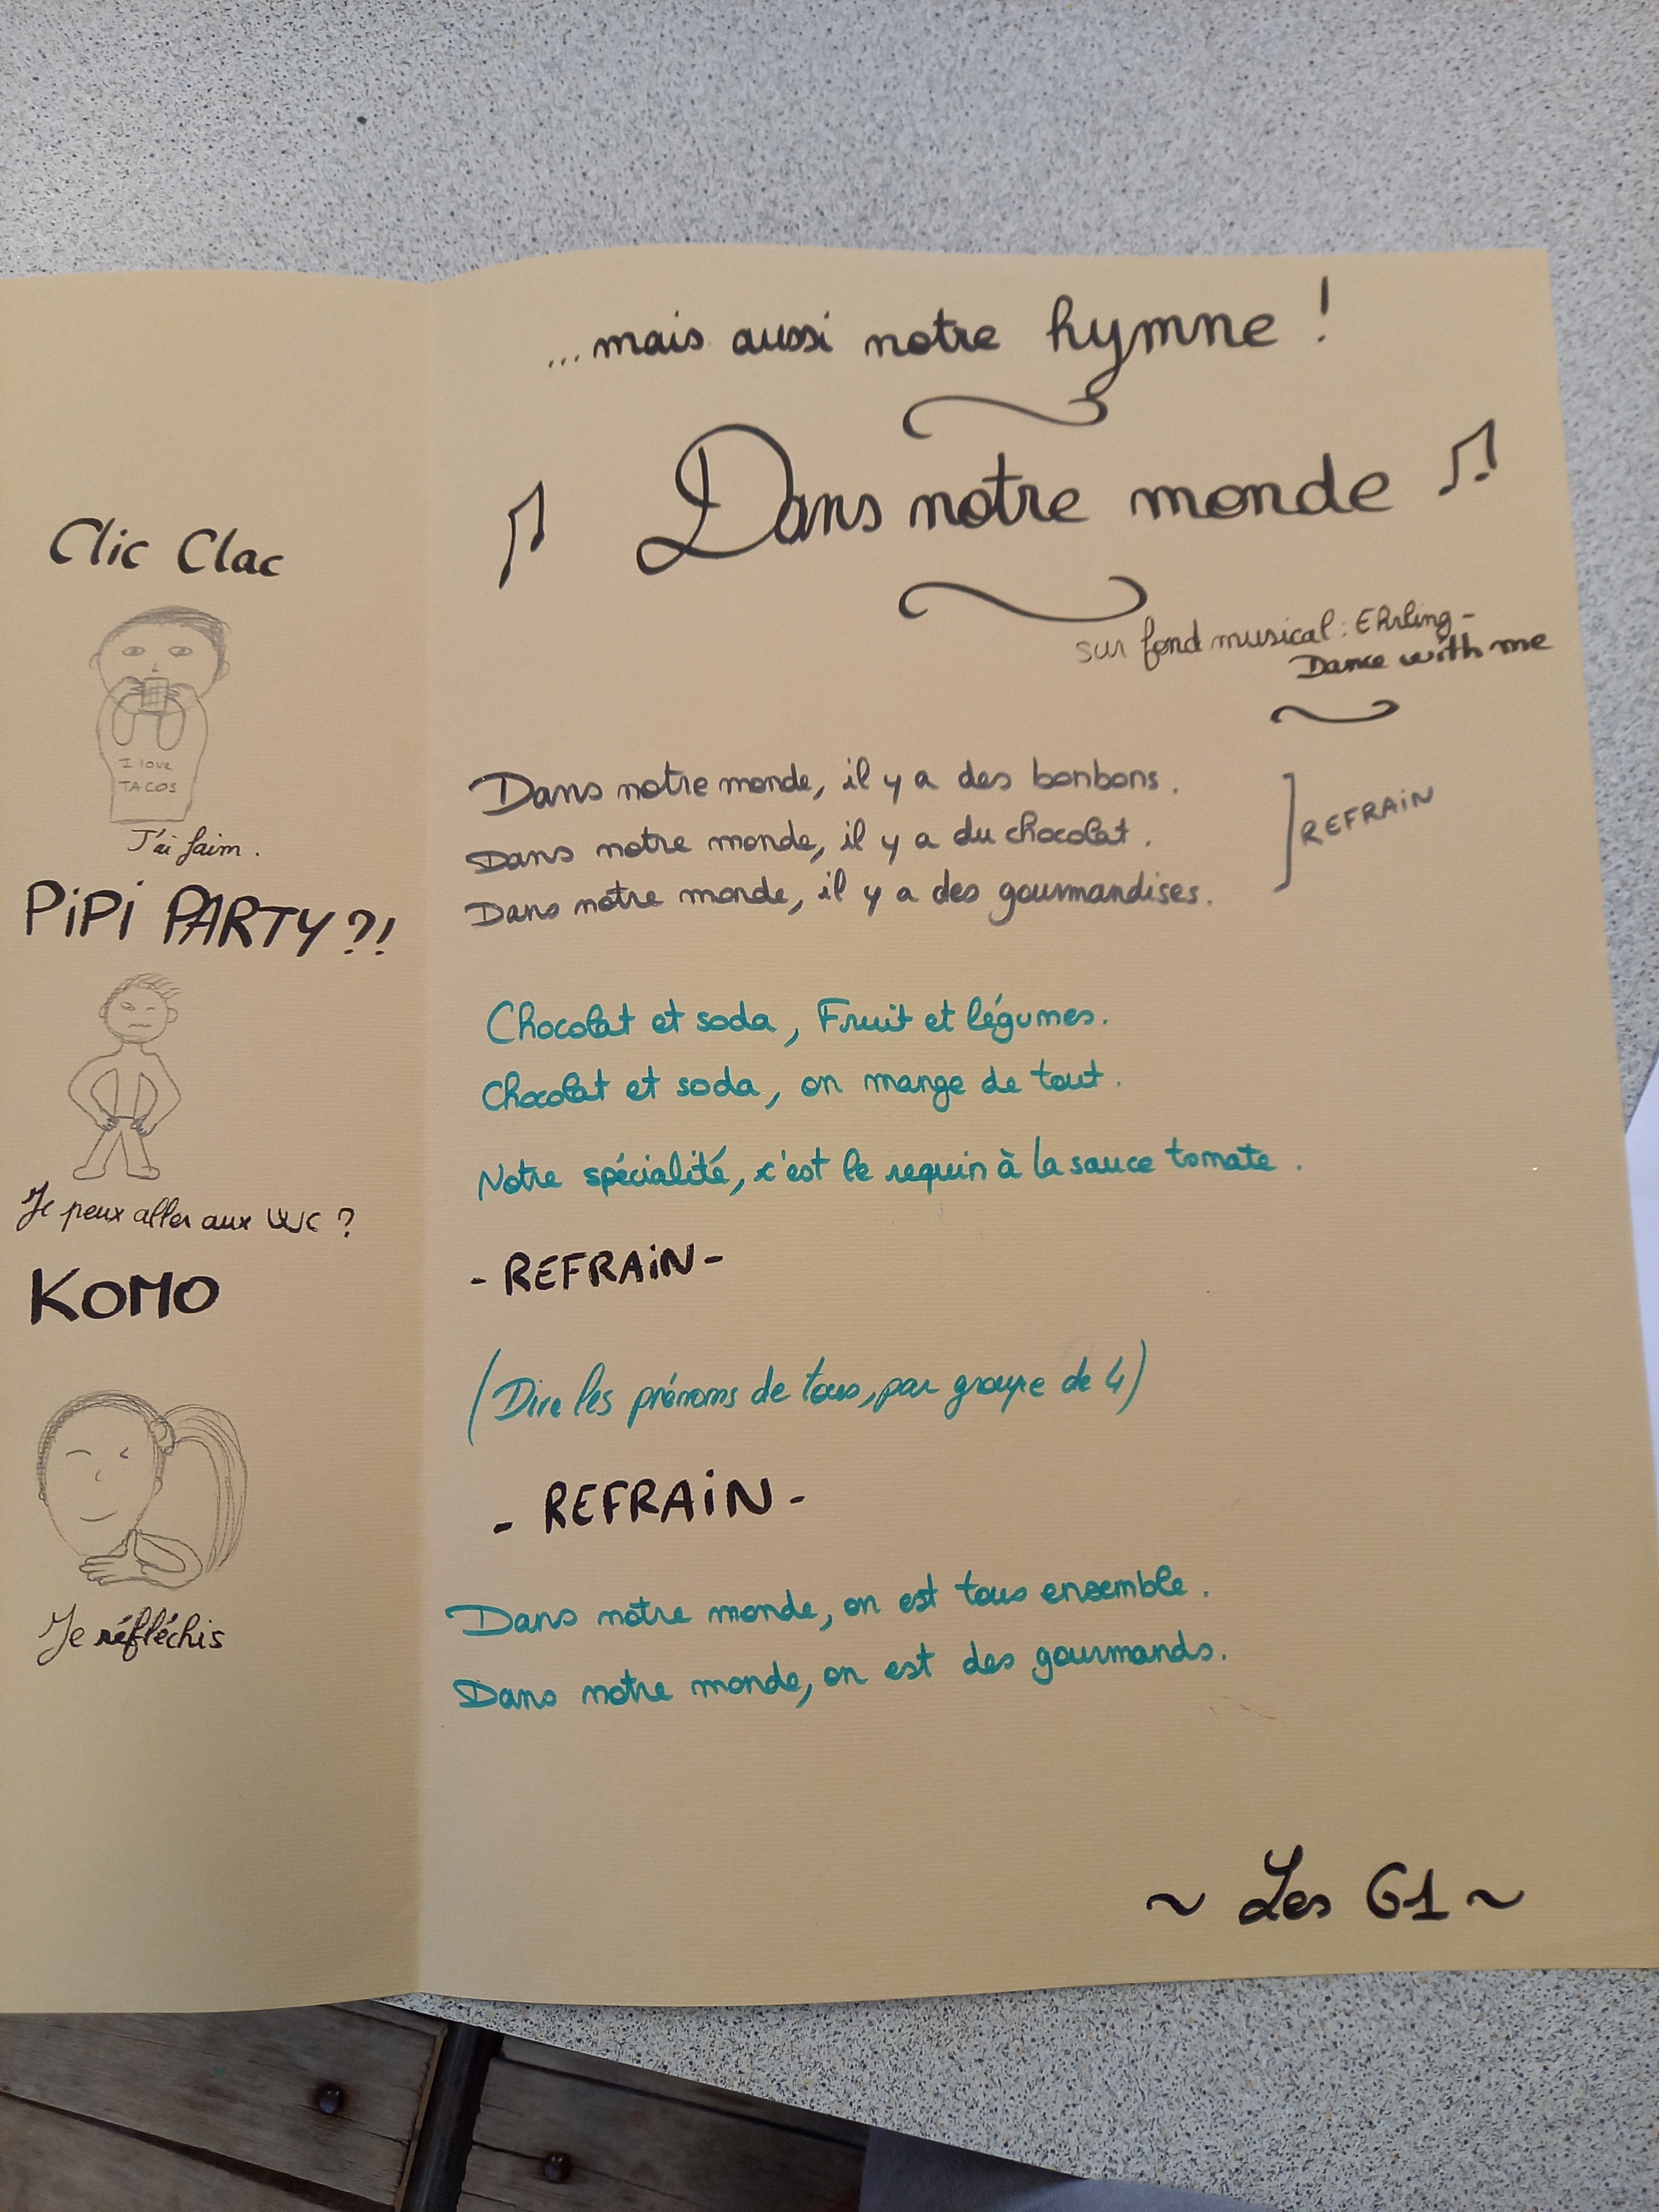 Clic Clac
I love
TACOS
J'ai faim.
PiPi PARTY ?!
Je peux aller aux WC ?
KOMO
Je réfléchis
...mais aussi notre hymne !
Dans notre monde
sur fond musical : Ehrling -
Dance with me
Dans notre monde, il y a des bonbons.
Dans notre monde, il y a du chocolat.
Dans notre monde, il y a des gourmandises.
REFRAiN
Chocolat et soda, Fruit et légumes.
Chocolat et soda, on mange de tout.
Notre spécialité, c'est le requin à la sauce tomate.
- REFRAiN -
(Dire les prénoms de tous, par groupe de 4)
- REFRAiN -
Dans notre monde, on est tous ensemble.
Dans notre monde, on est des gourmands.
~ Les G1 ~